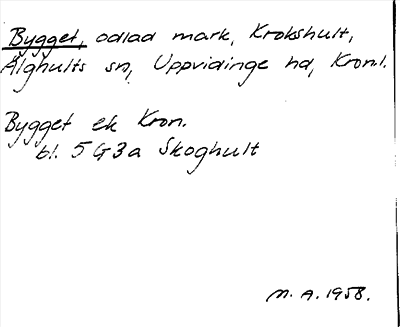 Bygget, odlad mark, Krokshult,
Älghults sn, Uppvidinge hd, Kronl.
Bygget ek Kron.
bl. 5 G 3 a Skoghult
M. A. 1958.